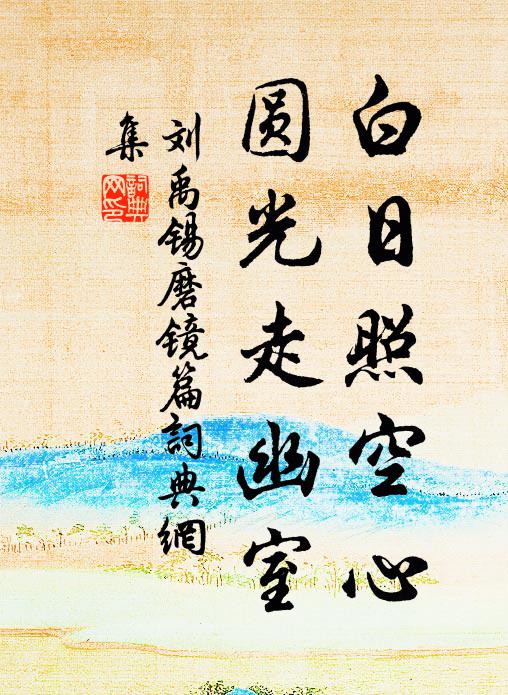 白日照空心
圆光走幽室
刘禹锡磨镜篇詞典網
集
詞典
网印